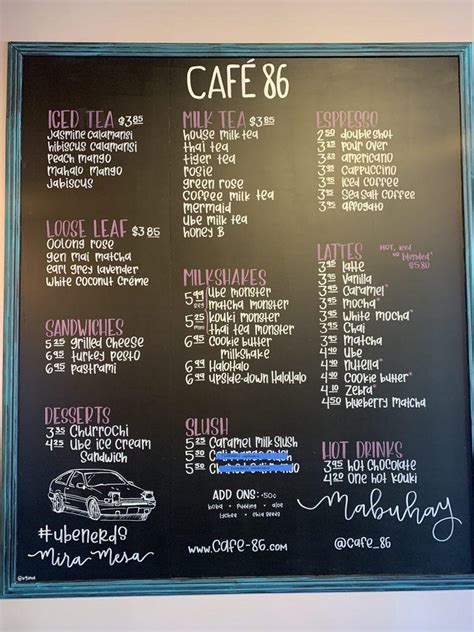 CAFÉ 86
ICED TEA $3.85
Jasmine Calamansi
Hibiscus Calamansi
Peach Mango
Mahalo Mango
Jabiscus
LOOSE LEAF $3.85
Oolong Rose
Gen Mai Matcha
Earl Grey Lavender
White Coconut Créme
SANDWICHES
5.25 Grilled Cheese
6.95 Turkey Pesto
6.95 Pastrami
DESSERTS
3.35 Churrochi
4.25 Ube Ice Cream
Sandwich
#ubenerds
Mira Mesa
MILK TEA $3.85
House Milk Tea
Thai Tea
Tiger Tea
Rosie
Green Rose
Coffee Milk Tea
Mermaid
Ube Milk Tea
Honey B
MILKSHAKES
5.99 Ube Monster
Matcha Monster
5.25 Kouki Monster
Thai Tea Monster
6.95 Cookie Butter
Milkshake
6.99 HaloHalo
6.99 Upside-Down HaloHalo
SLUSH
5.25 Caramel Milk Slush
5.50
5.50
ADD ONS: +50¢
boba • pudding • aloe
lychee • chia seeds
www.Cafe-86.com
ESPRESSO
2.50 Double Shot
3.25 Pour Over
Americano
3.95 Cappuccino
3.95 Iced Coffee
3.95 Sea Salt Coffee
3.95 Affogato
LATTES
HOT, ICED
or blended*
$5.80
3.95 Latte
3.95 Vanilla
3.95 Caramel*
3.95 Mocha*
3.95 White Mocha*
3.95 Chai
3.95 Matcha
4.40 Ube
4.40 Nutella*
4.40 Cookie Butter*
4.10 Zebra*
4.50 Blueberry Matcha
HOT DRINKS
3.95 Hot Chocolate
4.20 One Hot Kouki
Mabuhay
@cafe_86